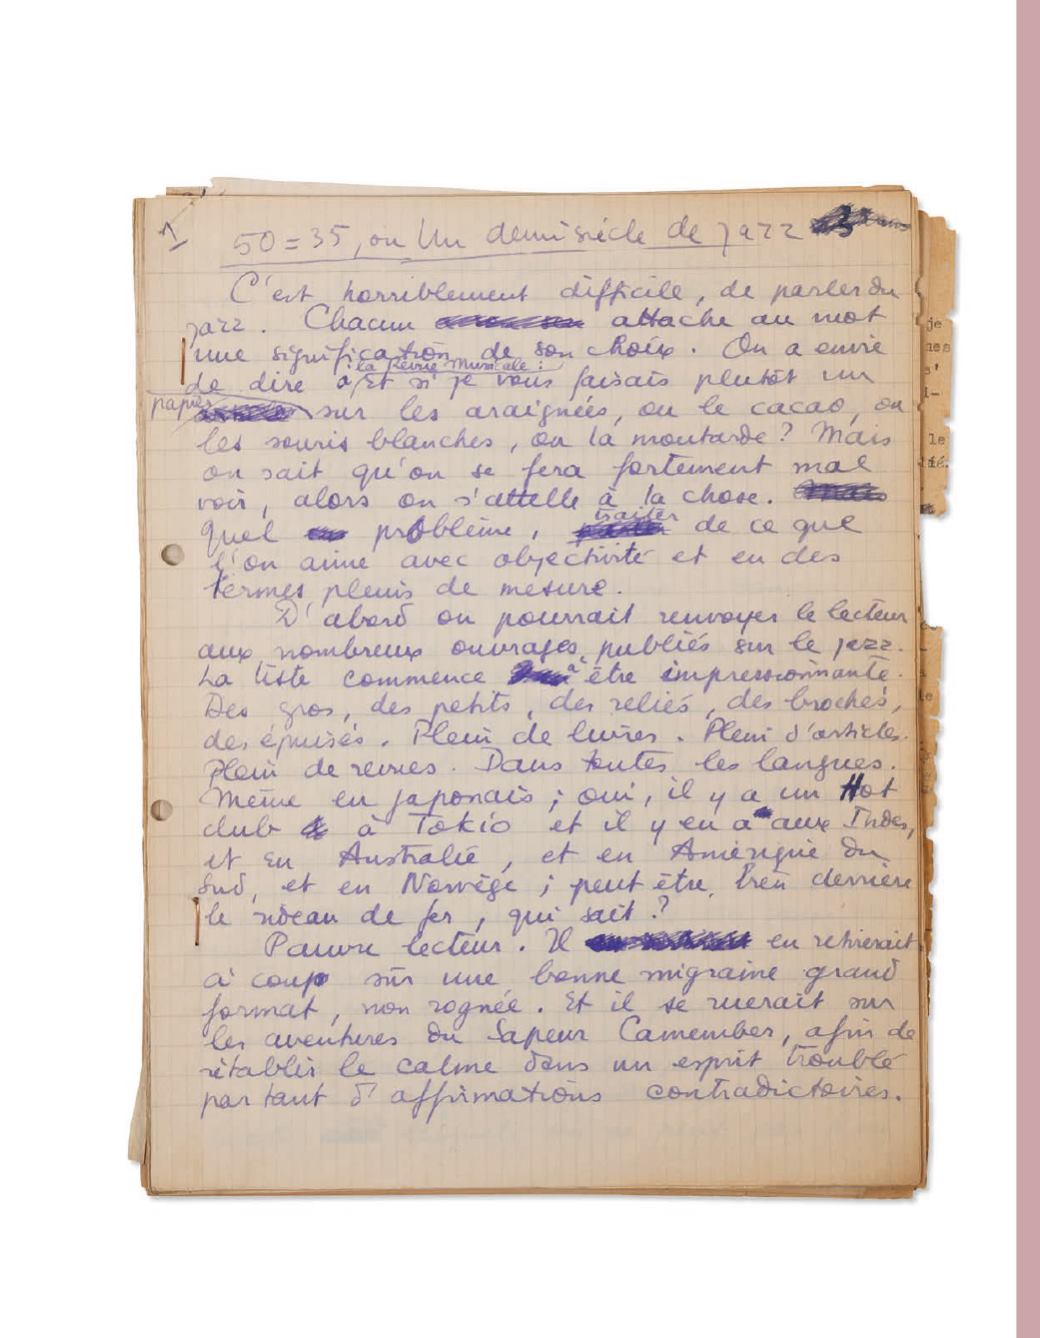 1
50=35, ou Un demi siècle de jazz
C'est horriblement difficile, de parler du
jazz. Chacun attache au mot
une signification de son choix. On a envie
la Revue Musicale :
de dire à Et si je vous faisais plutôt un
papier sur les araignées, ou le cacao, ou
les souris blanches, ou la moutarde ? Mais
on sait qu'on se fera fortement mal
voir, alors on s'attelle à la chose.
traiter
Quel problème, de ce que
l'on aime avec objectivité et en des
termes pleins de mesure.
D'abord on pourrait renvoyer le lecteur
aux nombreux ouvrages publiés sur le jazz.
La liste commence à être impressionnante.
Des gros, des petits, des reliés, des brochés,
des épuisés. Plein de livres. Plein d'articles.
Plein de revues. Dans toutes les langues.
Même en japonais ; oui, il y a un Hot
club à Tokio et il y en a aux Indes,
et en Australie, et en Amérique du
Sud, et en Norvège ; peut être, bien derrière
le rideau de fer, qui sait ?
Pauvre lecteur. Il en retirerait
à coup sûr une bonne migraine grand
format, non rognée. Et il se ruerait sur
les aventures du Sapeur Camember, afin de
rétablir le calme dans un esprit troublé
par tant d'affirmations contradictoires.
je
le